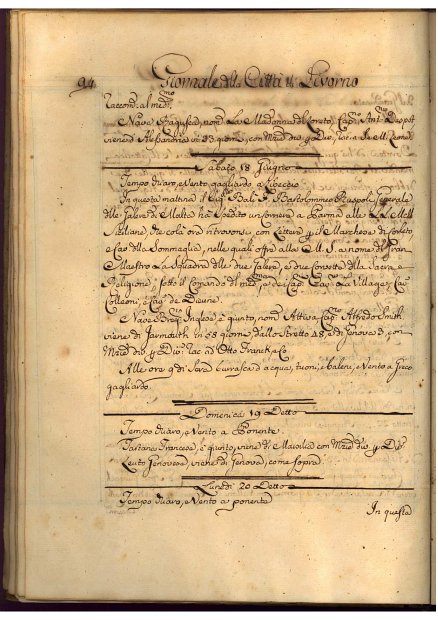 94. Giornale della Città di Livorno
Raccond. al med.mo
Nave Ragusea, nom. La Madonna di Loreto, Cap.o Ant.o
viene d'Alessandria in 33 giorni, con Merd div. p Div.
Sabato 18 Giugno
Tempo vario, e Vento gagliardo a Libeccio
In questa mattina il Sig.r Balì F. Bartolommeo Ruspoli Generale
delle Galere di Malta ha spedito un Corriere a Parma alle LL. MM.
Siciliane, che colà ora ritrovonsi con Lettere p il Marchese di
e Cav della Sommaglia, nelle quali offre alle M. S. a nome del Gran
Maestro La Squadra delle due Galere, e due Corvette della Sacra
Religione, sotto il Comando del med.mo, e dei Cap. Cav. La Village, Cav.
Colleoni, e Cav. de
Nave Brig. Inglese è giunto, nom. Attiva Cap. Alfredo Smith
viene di Jarmouth in 58 giorni, dallo Stretto 18, e di Genova 3, con
Merd div. p Div. Rac. ad Otto Franck, e C.
Alle ore 9 di Sera burrasca d'acqua, tuoni, e baleni, e Vento a Greco
gagliardo.
Domenica 19 Detto
Tempo Vario, e Vento a Ponente.
Tartane Francese, è giunto, viene di Marsilia con Merd div. p Div.
Leuto Genovese, viene di Genova, come sopra.
Lunedì 20 Detto
Tempo Vario, e Vento a ponente
In questa